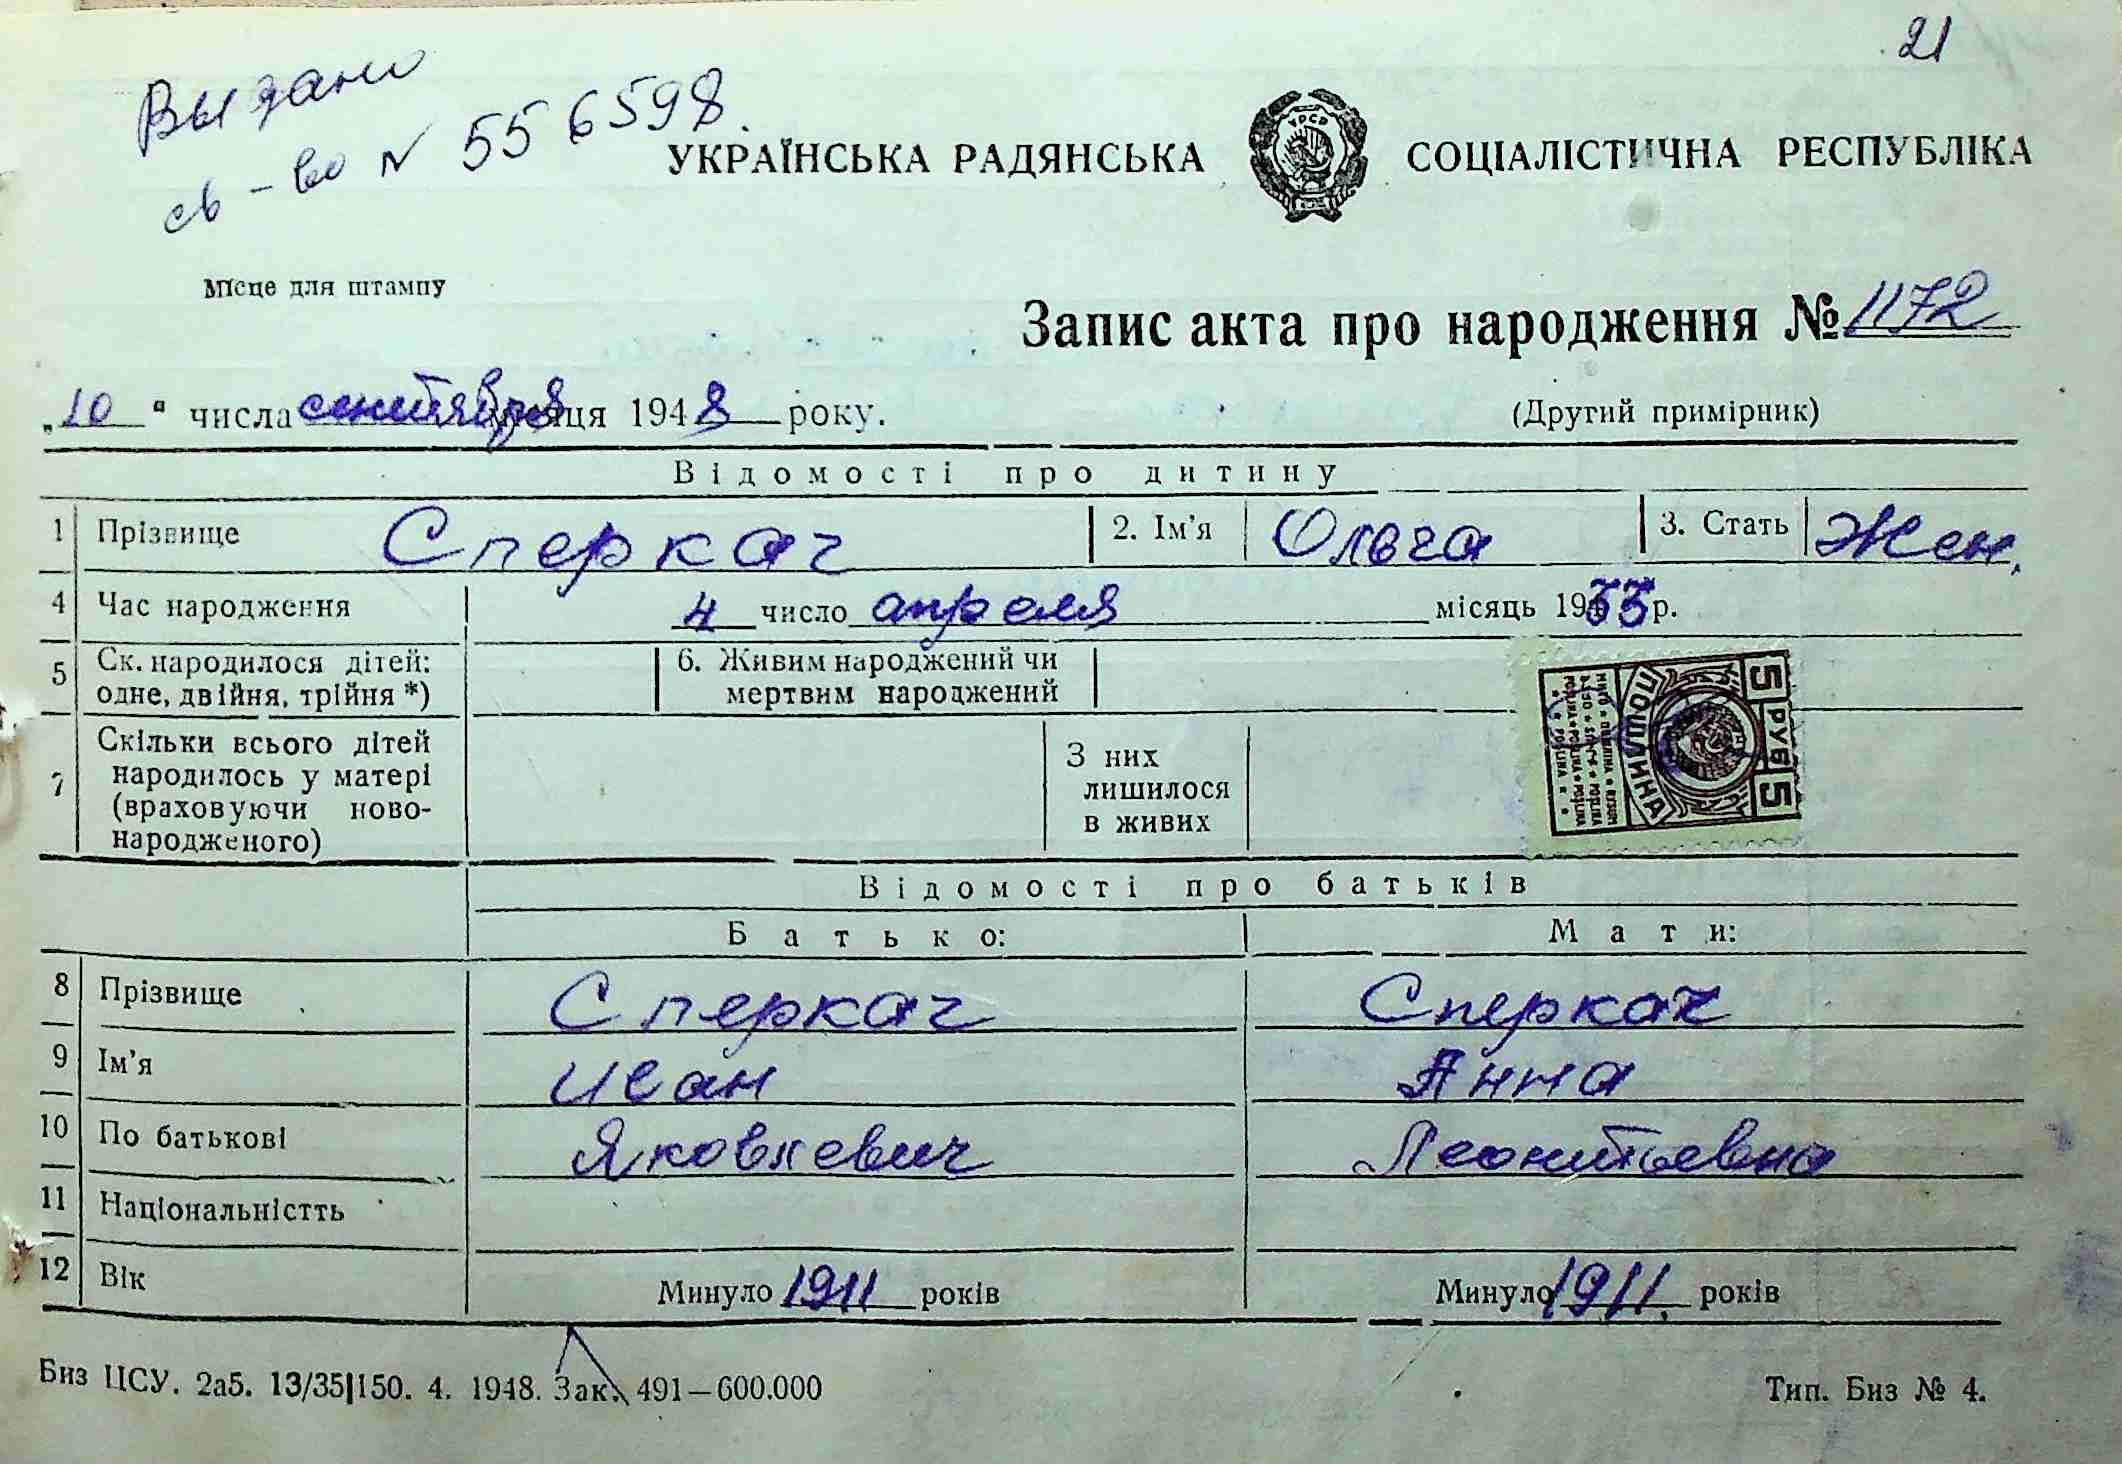 21
Выдано
св-во № 556598
УКРАЇНСЬКА РАДЯНСЬКА СОЦІАЛІСТИЧНА РЕСПУБЛІКА
УРСР
Місце для штампу
Запис акта про народження № 1172
„10“ числа сентября місяця 1948 року.
(Другий примірник)
Відомості про дитину
1 Прізвище Сперкач 2. Ім'я Ольга 3. Стать Жен.
4 Час народження 4 число апреля місяць 1933 р.
5 Ск. народилося дітей: одне, двійня, трійня *) 6. Живим народжений чи мертвим народжений
7 Скільки всього дітей народилось у матері (враховуючи новонародженого) З них лишилося в живих
5 РУБ 5
ПОШЛИНА
Відомості про батьків
Батько: Мати:
8 Прізвище Сперкач Сперкач
9 Ім'я Иван Анна
10 По батькові Яковлевич Леонтьевна
11 Національністть
12 Вік Минуло 1911 років Минуло 1911. років
Биз ЦСУ. 2а5. 13/35|150. 4. 1948. Зак. 491—600.000
Тип. Биз № 4.